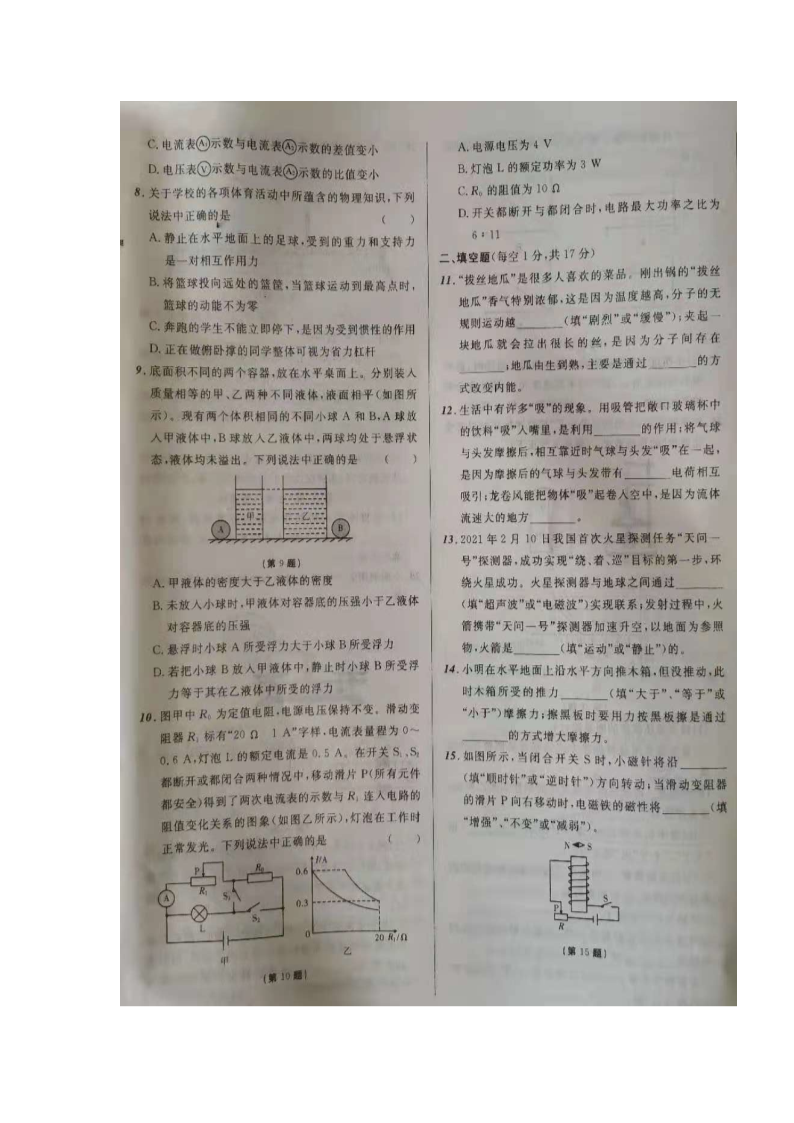 C. 电流表A₁示数与电流表A₂示数的差值变小
D. 电压表V示数与电流表A₂示数的比值变小
8. 关于学校的各项体育活动中所蕴含的物理知识,下列
说法中正确的是 ( )
A. 静止在水平地面上的足球,受到的重力和支持力
是一对相互作用力
B. 将篮球投向远处的篮筐,当篮球运动到最高点时,
篮球的动能不为零
C. 奔跑的学生不能立即停下,是因为受到惯性的作用
D. 正在做俯卧撑的同学整体可视为省力杠杆
9. 底面积不同的两个容器,放在水平桌面上。分别装入
质量相等的甲、乙两种不同液体,液面相平(如图所
示)。现有两个体积相同的不同小球 A 和 B,A 球放
入甲液体中,B 球放入乙液体中,两球均处于悬浮状
态,液体均未溢出。下列说法中正确的是 ( )
甲 乙
A B
(第 9 题)
A. 甲液体的密度大于乙液体的密度
B. 未放入小球时,甲液体对容器底的压强小于乙液体
对容器底的压强
C. 悬浮时小球 A 所受浮力大于小球 B 所受浮力
D. 若把小球 B 放入甲液体中,静止时小球 B 所受浮
力等于其在乙液体中所受的浮力
10. 图甲中 R₀ 为定值电阻,电源电压保持不变。滑动变
阻器 R₁ 标有“20 Ω 1 A”字样,电流表量程为 0~
0.6 A,灯泡 L 的额定电流是 0.5 A。在开关 S₁、S₂
都断开或都闭合两种情况中,移动滑片 P(所有元件
都安全)得到了两次电流表的示数与 R₁ 连入电路的
阻值变化关系的图象(如图乙所示),灯泡在工作时
正常发光。下列说法中正确的是 ( )
P R₀
A R₁ S₁
L S₂
甲
I/A
0.6
0.3
0 20 R₁/Ω
乙
(第 10 题)
A. 电源电压为 4 V
B. 灯泡 L 的额定功率为 3 W
C. R₀ 的阻值为 10 Ω
D. 开关都断开与都闭合时,电路最大功率之比为
6∶11
二、填空题(每空 1 分,共 17 分)
11. “拔丝地瓜”是很多人喜欢的菜品。刚出锅的“拔丝
地瓜”香气特别浓郁,这是因为温度越高,分子的无
规则运动越______(填“剧烈”或“缓慢”);夹起一
块地瓜就会拉出很长的丝,是因为分子间存在
______;地瓜由生到熟,主要是通过______的方
式改变内能。
12. 生活中有许多“吸”的现象。用吸管把敞口玻璃杯中
的饮料“吸”入嘴里,是利用______的作用;将气球
与头发摩擦后,相互靠近时气球与头发“吸”在一起,
是因为摩擦后的气球与头发带有______电荷相互
吸引;龙卷风能把物体“吸”起卷入空中,是因为流体
流速大的地方______。
13. 2021 年 2 月 10 日我国首次火星探测任务“天问一
号”探测器,成功实现“绕、着、巡”目标的第一步,环
绕火星成功。火星探测器与地球之间通过______
(填“超声波”或“电磁波”)实现联系;发射过程中,火
箭携带“天问一号”探测器加速升空,以地面为参照
物,火箭是______(填“运动”或“静止”)的。
14. 小明在水平地面上沿水平方向推木箱,但没推动,此
时木箱所受的推力______(填“大于”、“等于”或
“小于”)摩擦力;擦黑板时要用力按黑板擦是通过
______的方式增大摩擦力。
15. 如图所示,当闭合开关 S 时,小磁针将沿______
(填“顺时针”或“逆时针”)方向转动;当滑动变阻器
的滑片 P 向右移动时,电磁铁的磁性将______(填
“增强”、“不变”或“减弱”)。
N S
P S
R
(第 15 题)